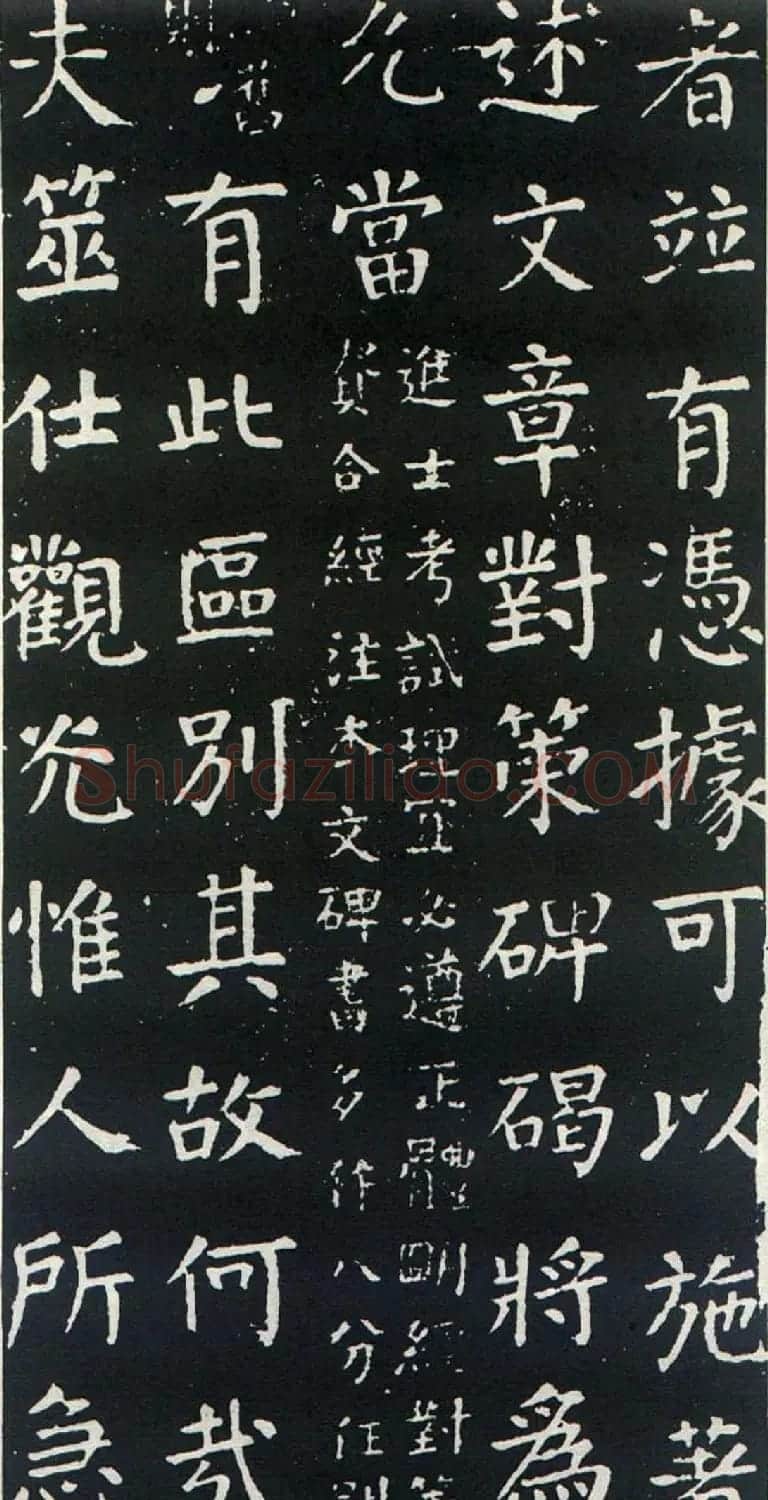 者竝有憑據可以施著
述文章對策碑碣將爲
允當
進士考試理宜必遵正體明經對策
貴合經注本文碑書多作八分任別
舊
則
有此區別其故何哉
夫筮仕觀光惟人所急
Shufaziliao.COM